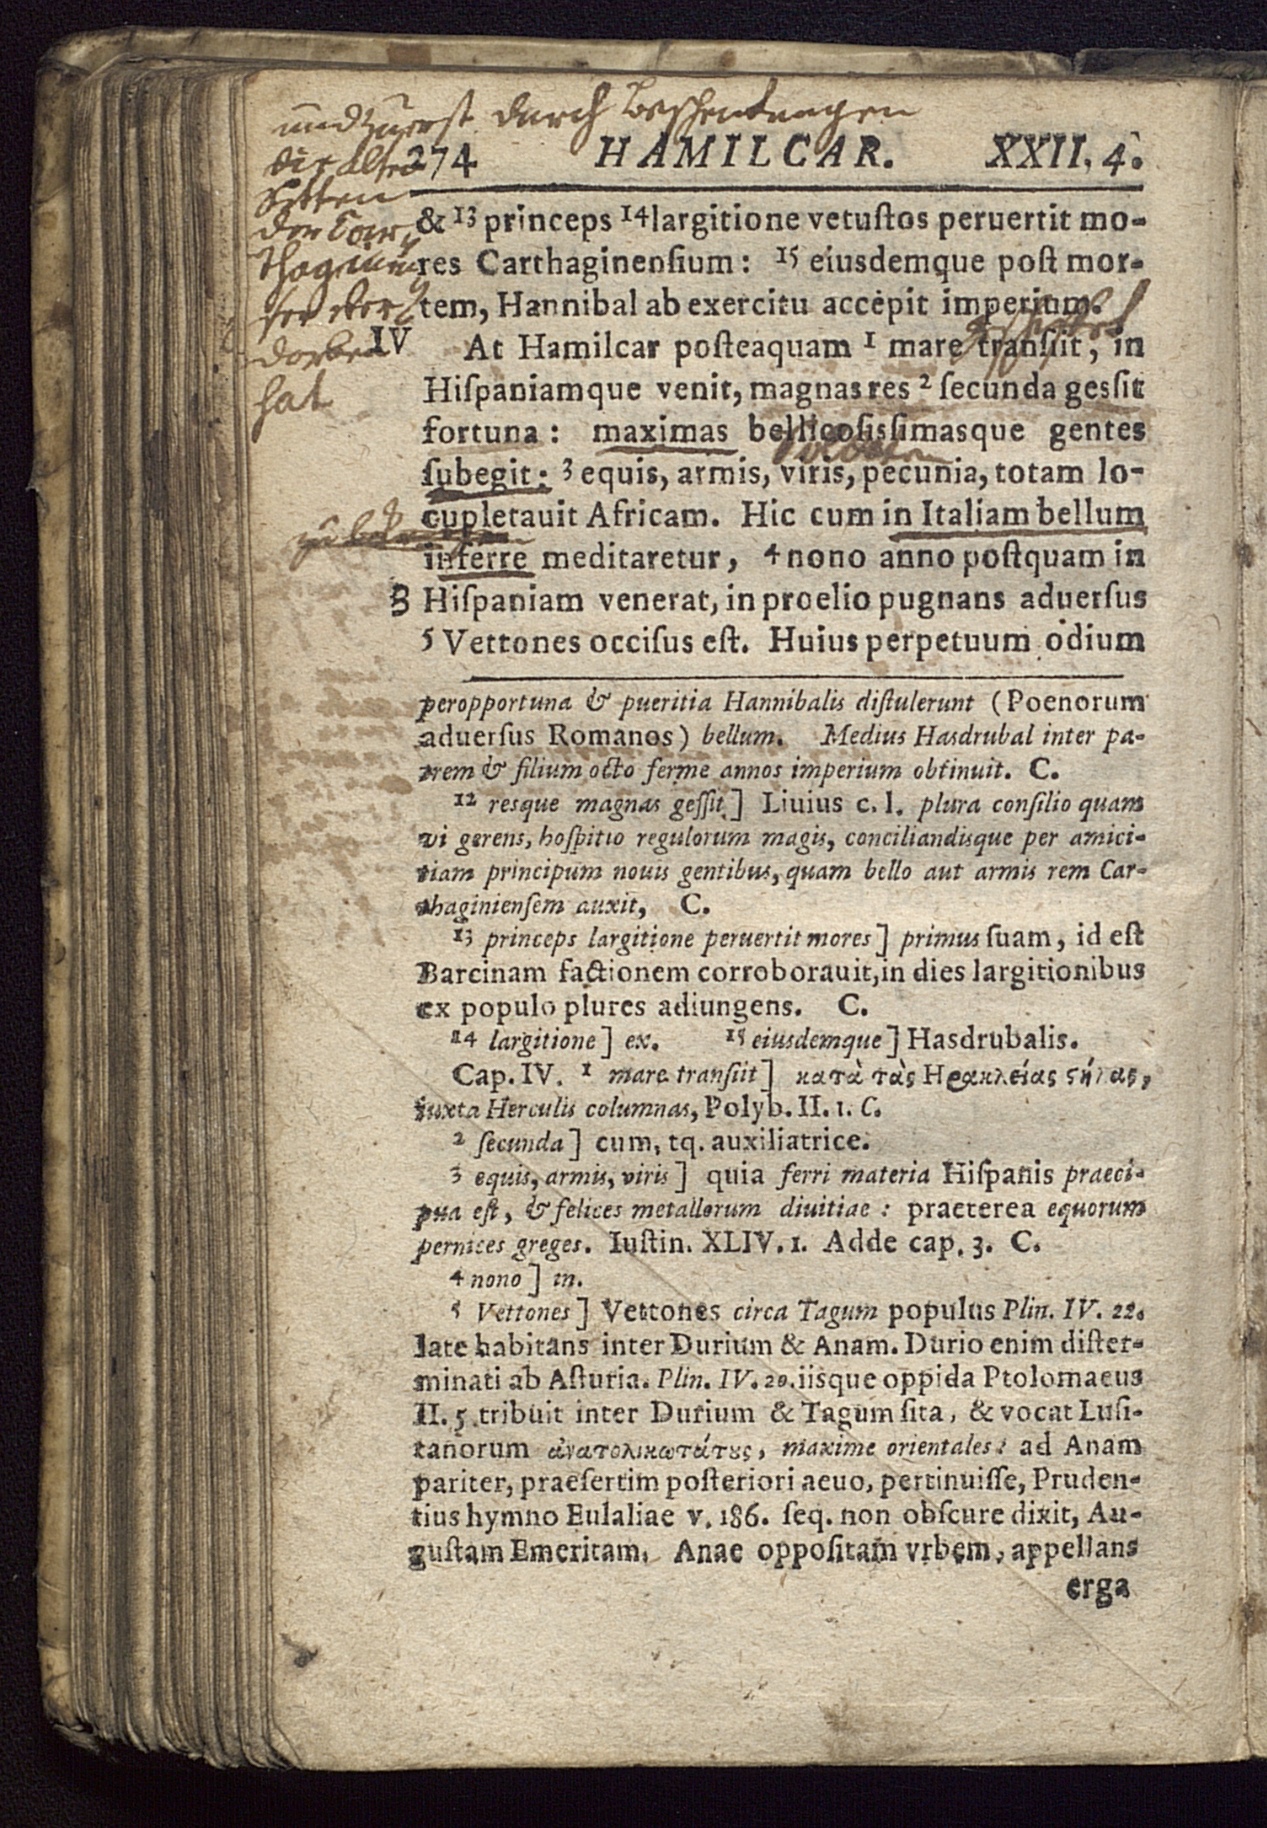 und zuerst durch Beschenkungen
die alten
Sitten
der Car
thaginen
ser ver
dorben
hat
274 HAMILCAR. XXII. 4.
& 13 princeps 14 largitione vetuſtos peruertit mo-
res Carthaginenſium: 15 eiusdemque poſt mor-
tem, Hannibal ab exercitu accepit imperium.
IV At Hamilcar poſteaquam 1 mare tranſiit, in
Hiſpaniamque venit, magnas res 2 ſecunda gessit
fortuna: maximas bellicoſisſimasque gentes
Soldaten
ſubegit: 3 equis, armis, viris, pecunia, totam lo-
cupletauit Africam. Hic cum in Italiam bellum
inferre meditaretur, 4 nono anno poſtquam in
3 Hiſpaniam venerat, in proelio pugnans aduerſus
5 Vettones occiſus eſt. Huius perpetuum odium
peropportuna & pueritia Hannibalis diſtulerunt (Poenorum
aduerſus Romanos) bellum. Medius Hasdrubal inter pa-
trem & filium octo ferme annos imperium obtinuit. C.
12 resque magnas geſſit] Liuius c. l. plura conſilio quam
vi gerens, hoſpitio regulorum magis, conciliandisque per amici-
tiam principum nouis gentibus, quam bello aut armis rem Car-
thaginienſem auxit, C.
13 princeps largitione peruertit mores] primus ſuam, id eſt
Barcinam factionem corroborauit, in dies largitionibus
ex populo plures adiungens. C.
14 largitione] ex. 15 eiusdemque] Hasdrubalis.
Cap. IV. 1 mare tranſiit] κατὰ τὰς Ηρακλείας ϛήλας,
iuxta Herculis columnas, Polyb. II. 1. C.
2 ſecunda] cum, tq. auxiliatrice.
3 equis, armis, viris] quia ferri materia Hiſpanis praeci-
pua eſt, & felices metallorum diuitiae: praeterea equorum
pernices greges. Iuſtin. XLIV. 1. Adde cap. 3. C.
4 nono] in.
5 Vettones] Vettones circa Tagum populus Plin. IV. 22.
late habitans inter Durium & Anam. Durio enim diſter-
minati ab Aſturia. Plin. IV. 20. iisque oppida Ptolomaeus
II. 5. tribuit inter Durium & Tagum ſita, & vocat Luſi-
tanorum ἀνατολικωτάτȣς, maxime orientales: ad Anam
pariter, praeſertim poſteriori aeuo, pertinuiſſe, Pruden-
tius hymno Eulaliae v. 186. ſeq. non obſcure dixit, Au-
guſtam Emeritam, Anae oppoſitam vrbem, appellans
erga